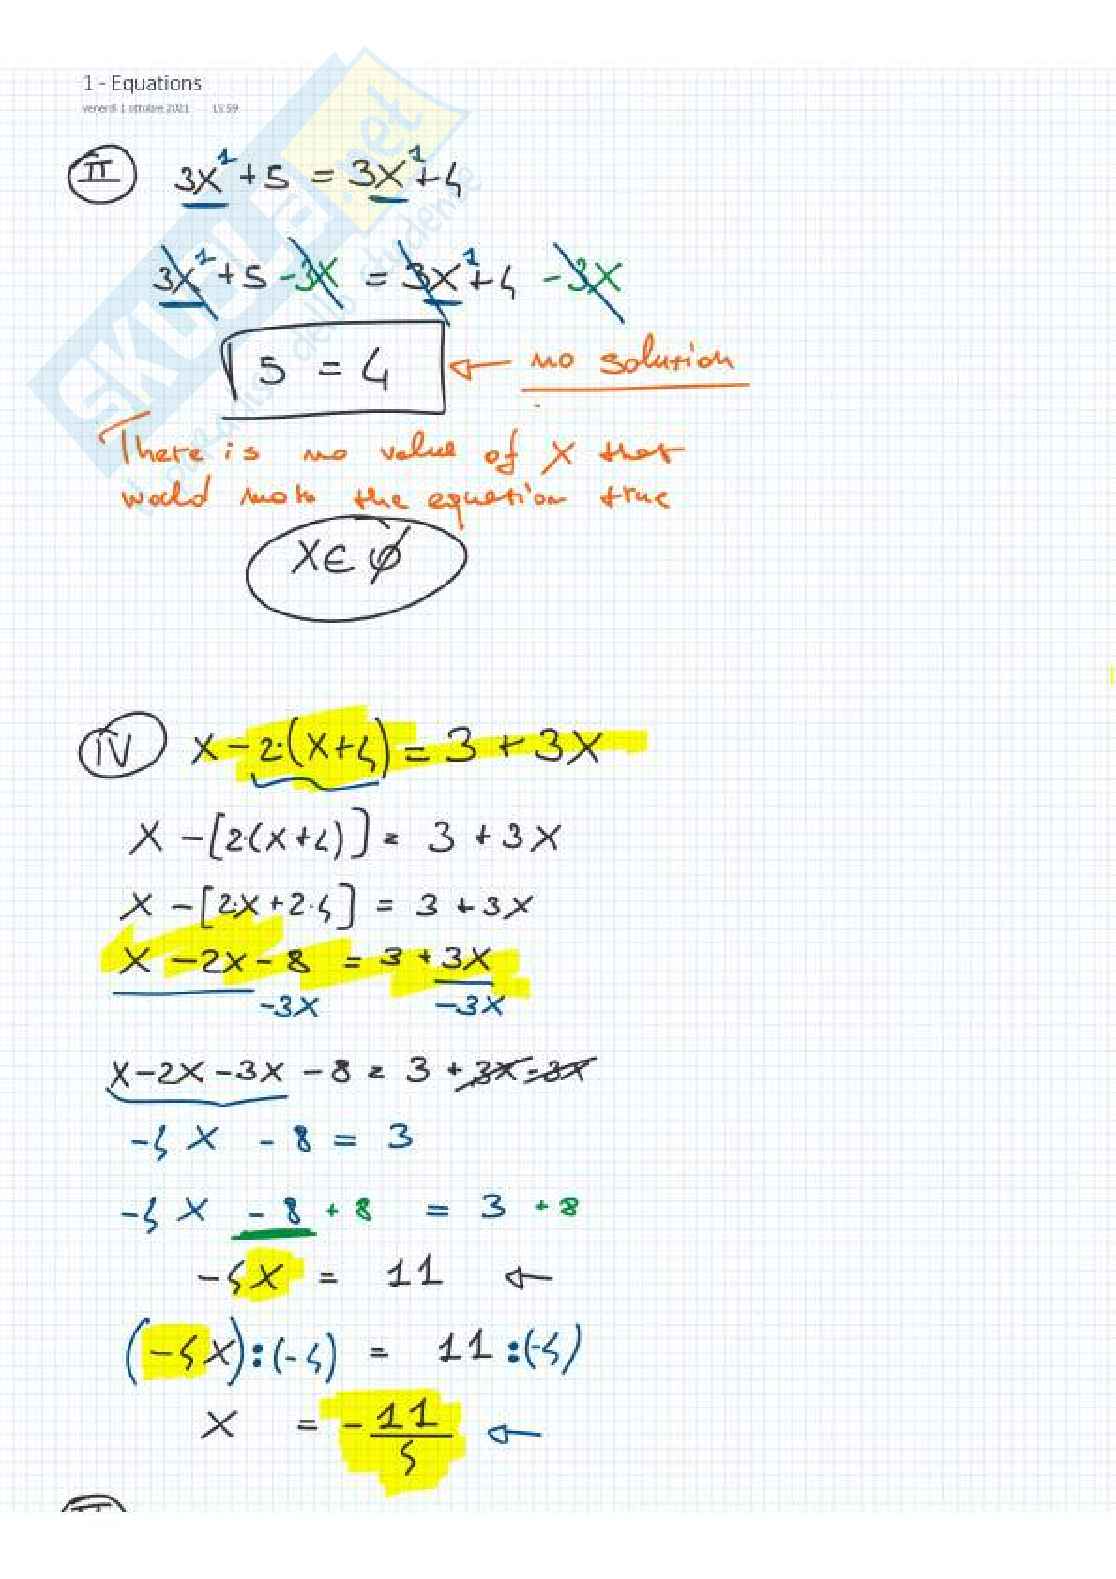 1 - Equations
venerdì 1 ottobre 2021 15:59
II 3x¹ + 5 = 3x¹ + 4
3x¹ + 5 - 3x = 3x¹ + 4 - 3x
5 = 4 ← no solution
There is no value of x that
would make the equation true
x ∈ ∅
IV x - 2·(x+4) = 3 + 3x
x - [2·(x+4)] = 3 + 3x
x - [2·x + 2·4] = 3 + 3x
x - 2x - 8 = 3 + 3x
-3x -3x
x - 2x - 3x - 8 = 3 + 3x - 3x
-4x - 8 = 3
-4x - 8 + 8 = 3 + 8
-4x = 11 ←
(-4x) : (-4) = 11 : (-4)
x = - 11/4 ←
SKUOLA.net